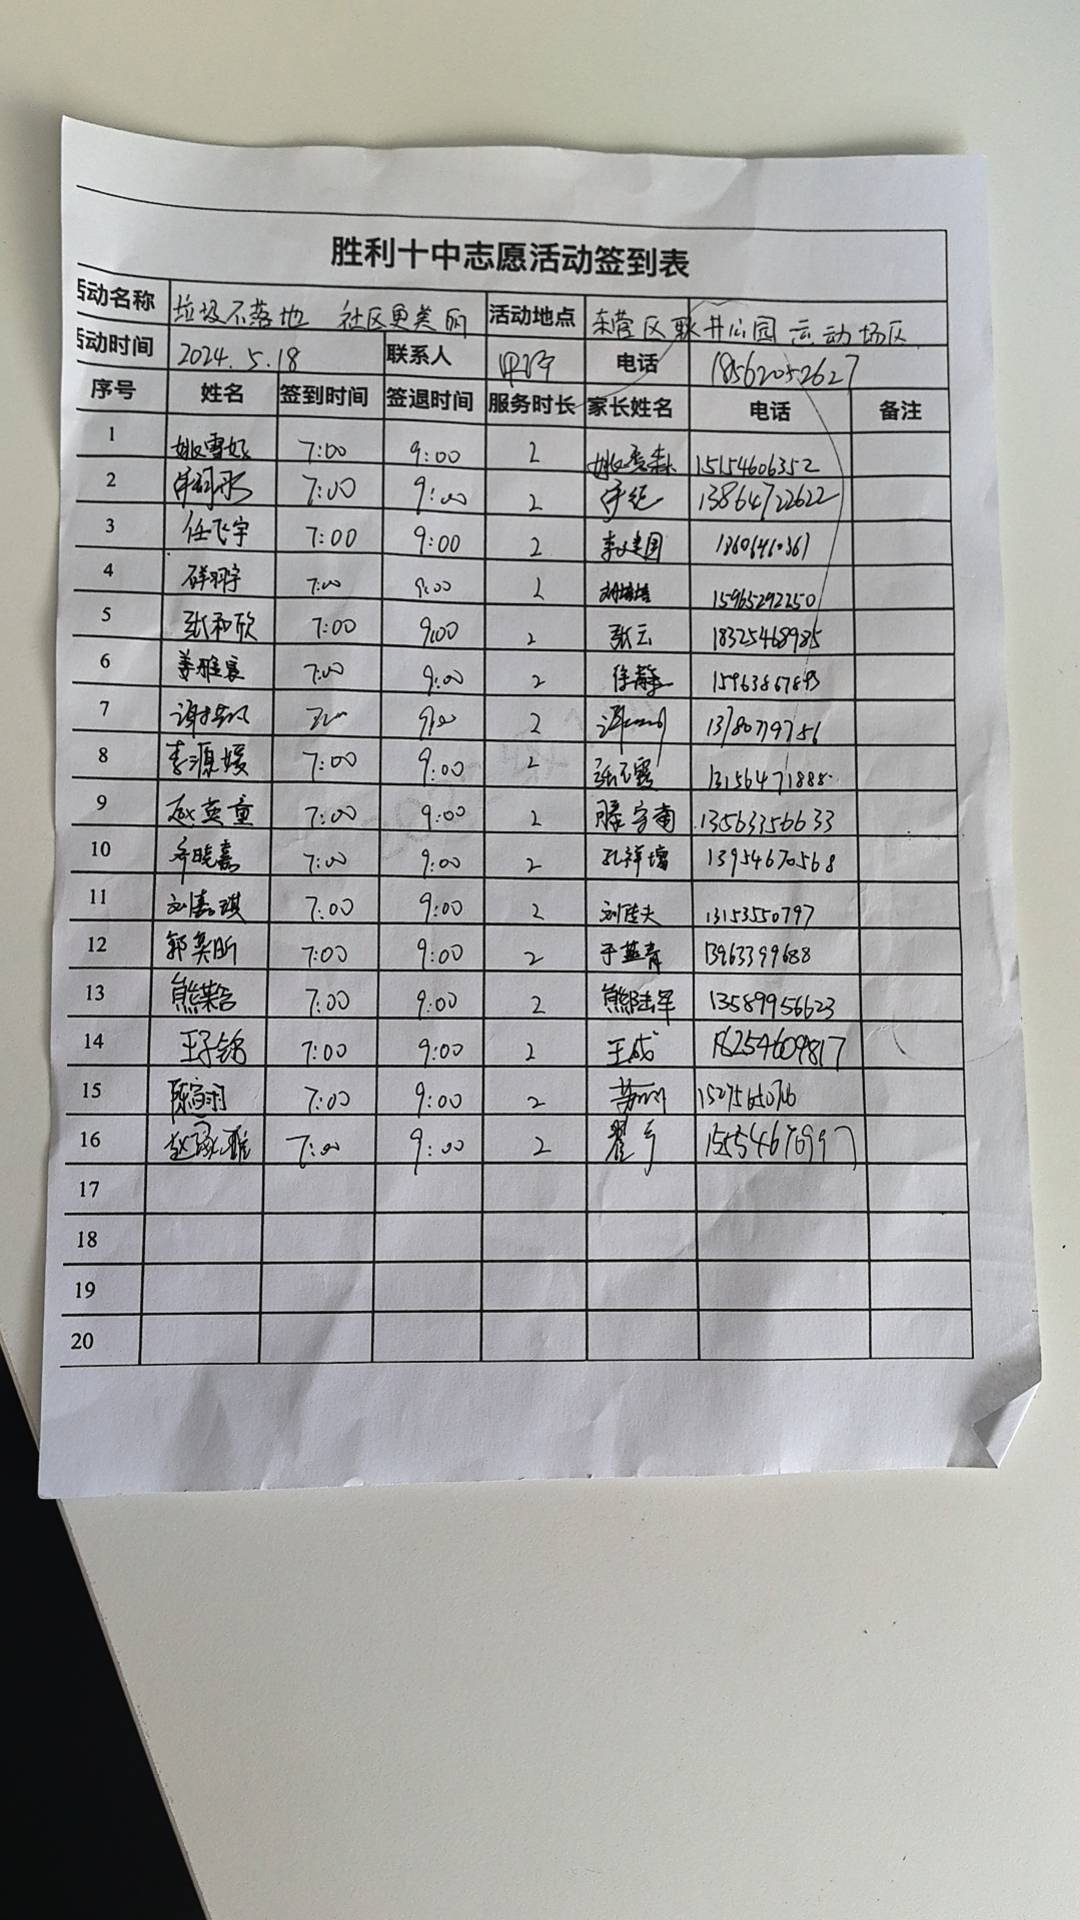 胜利十中志愿活动签到表
活动名称 垃圾不落地 社区更美丽 活动地点 东营区耿井公园运动场区
活动时间 2024.5.18 联系人 电话 18562052627
序号 姓名 签到时间 签退时间 服务时长 家长姓名 电话 备注
1 姚雪妍 7:00 9:00 2 15154606352
2 7:00 9:00 2 13864722622
3 任飞宇 7:00 9:00 2 李建国
4 7:00 9:00 2 15965292250
5 张和欣 7:00 9:00 2 张云 18325468985
6 姜雅宸 7:00 9:00 2 徐静
7 9:00 2 13780779756
8 李源媛 7:00 9:00 2 13156471888
9 7:00 9:00 2 滕宇南 13563356633
10 7:00 9:00 2 孔祥增 13954670568
11 刘嘉琪 7:00 9:00 2 刘佳夫 13153550797
12 郭奕昕 7:00 9:00 2 于蓝青 13963399688
13 7:00 9:00 2 熊陆军 13589956623
14 王子铭 7:00 9:00 2 王成 18254609817
15 7:00 9:00 2
16 7:00 9:00 2 15554676997
17
18
19
20